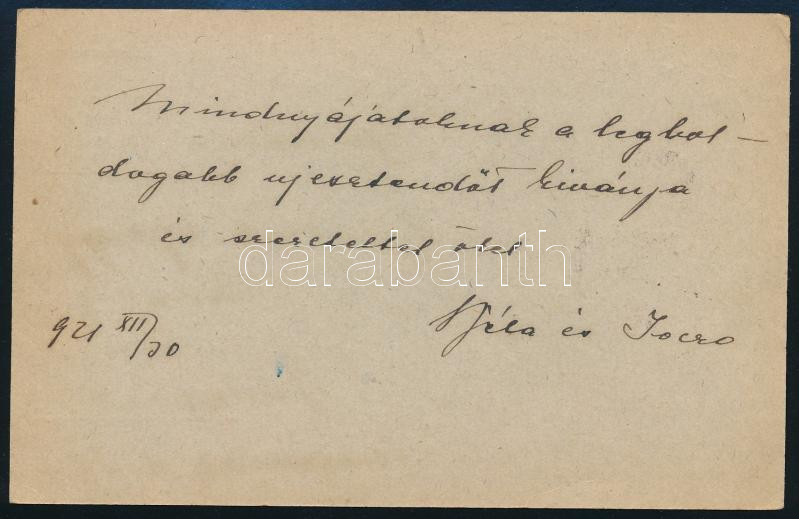 Mindnyájatoknak a legbol-
dogabb ujesztendőt kivánja
és szeretettel ölel
darabanth
921 XII/30
Béla és